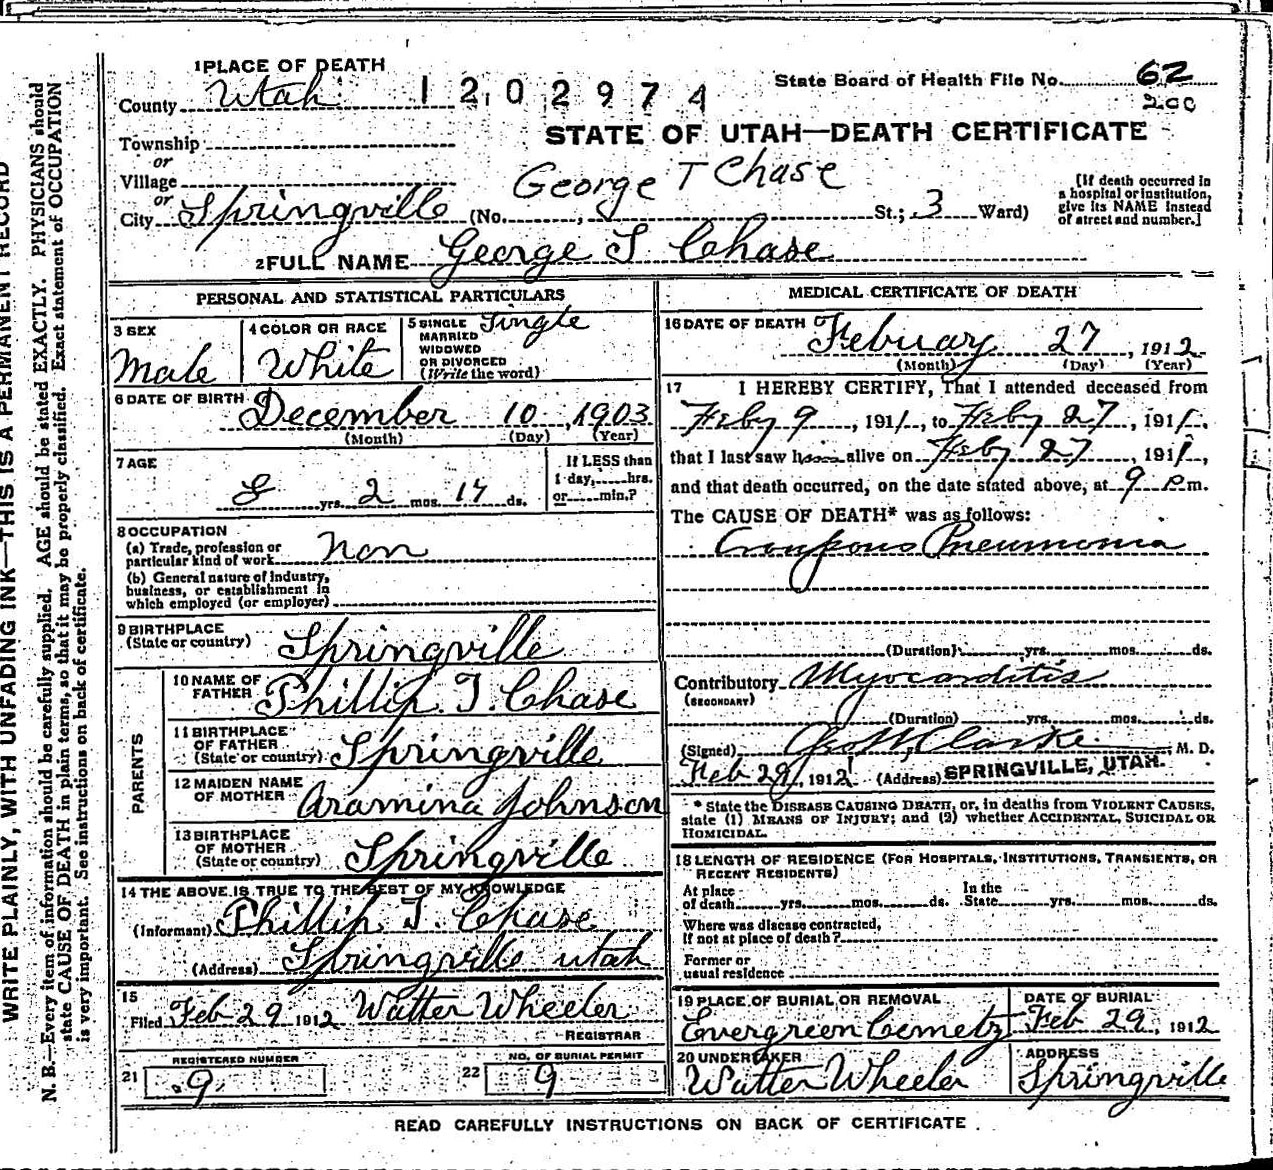 1 PLACE OF DEATH
County Utah
1202974
State Board of Health File No. 62
200
STATE OF UTAH—DEATH CERTIFICATE
Township
or
Village
George T Chase
or
City Springville (No. , St.; 3 Ward)
[If death occurred in
a hospital or institution,
give its NAME instead
of street and number.]
2 FULL NAME George T Chase
PERSONAL AND STATISTICAL PARTICULARS
3 SEX
Male
4 COLOR OR RACE
White
5 SINGLE
MARRIED
WIDOWED
OR DIVORCED
(Write the word)
Single
6 DATE OF BIRTH December 10, 1903
(Month) (Day) (Year)
7 AGE
8 yrs. 2 mos. 17 ds.
If LESS than
1 day, hrs.
or min.?
8 OCCUPATION
(a) Trade, profession or
particular kind of work Non
(b) General nature of industry,
business, or establishment in
which employed (or employer)
9 BIRTHPLACE
(State or country) Springville
PARENTS
10 NAME OF
FATHER Phillip T. Chase
11 BIRTHPLACE
OF FATHER
(State or country) Springville
12 MAIDEN NAME
OF MOTHER Aramina Johnson
13 BIRTHPLACE
OF MOTHER
(State or country) Springville
14 THE ABOVE IS TRUE TO THE BEST OF MY KNOWLEDGE
(Informant) Phillip T. Chase
(Address) Springville Utah
15
Filed Feb 29 1912 Walter Wheeler
REGISTRAR
REGISTERED NUMBER
21 9
NO. OF BURIAL PERMIT
22 9
MEDICAL CERTIFICATE OF DEATH
16 DATE OF DEATH February 27, 1912
(Month) (Day) (Year)
17 I HEREBY CERTIFY, That I attended deceased from
Feby 9, 1911, to Feby 27, 1911,
that I last saw him alive on Feby 27, 1911,
and that death occurred, on the date stated above, at 9 P.m.
The CAUSE OF DEATH* was as follows:
Croupous Pneumonia
(Duration) yrs. mos. ds.
Contributory Myocarditis
(SECONDARY)
(Duration) yrs. mos. ds.
(Signed) Clarke M. D.
Feb 29, 1912 (Address) SPRINGVILLE, UTAH.
* State the DISEASE CAUSING DEATH, or, in deaths from VIOLENT CAUSES,
state (1) MEANS OF INJURY; and (2) whether ACCIDENTAL, SUICIDAL OR
HOMICIDAL.
18 LENGTH OF RESIDENCE (FOR HOSPITALS, INSTITUTIONS, TRANSIENTS, OR
RECENT RESIDENTS)
At place
of death yrs. mos. ds.
In the
State yrs. mos. ds.
Where was disease contracted,
If not at place of death?
Former or
usual residence
19 PLACE OF BURIAL OR REMOVAL
Evergreen Cemetz
DATE OF BURIAL
Feb 29, 1912
20 UNDERTAKER
Walter Wheeler
ADDRESS
Springville
READ CAREFULLY INSTRUCTIONS ON BACK OF CERTIFICATE
WRITE PLAINLY, WITH UNFADING INK—THIS IS A PERMANENT RECORD
N. B.—Every item of information should be carefully supplied. AGE should be stated EXACTLY. PHYSICIANS should
state CAUSE OF DEATH in plain terms, so that it may be properly classified. Exact statement of OCCUPATION
is very important. See instructions on back of certificate.